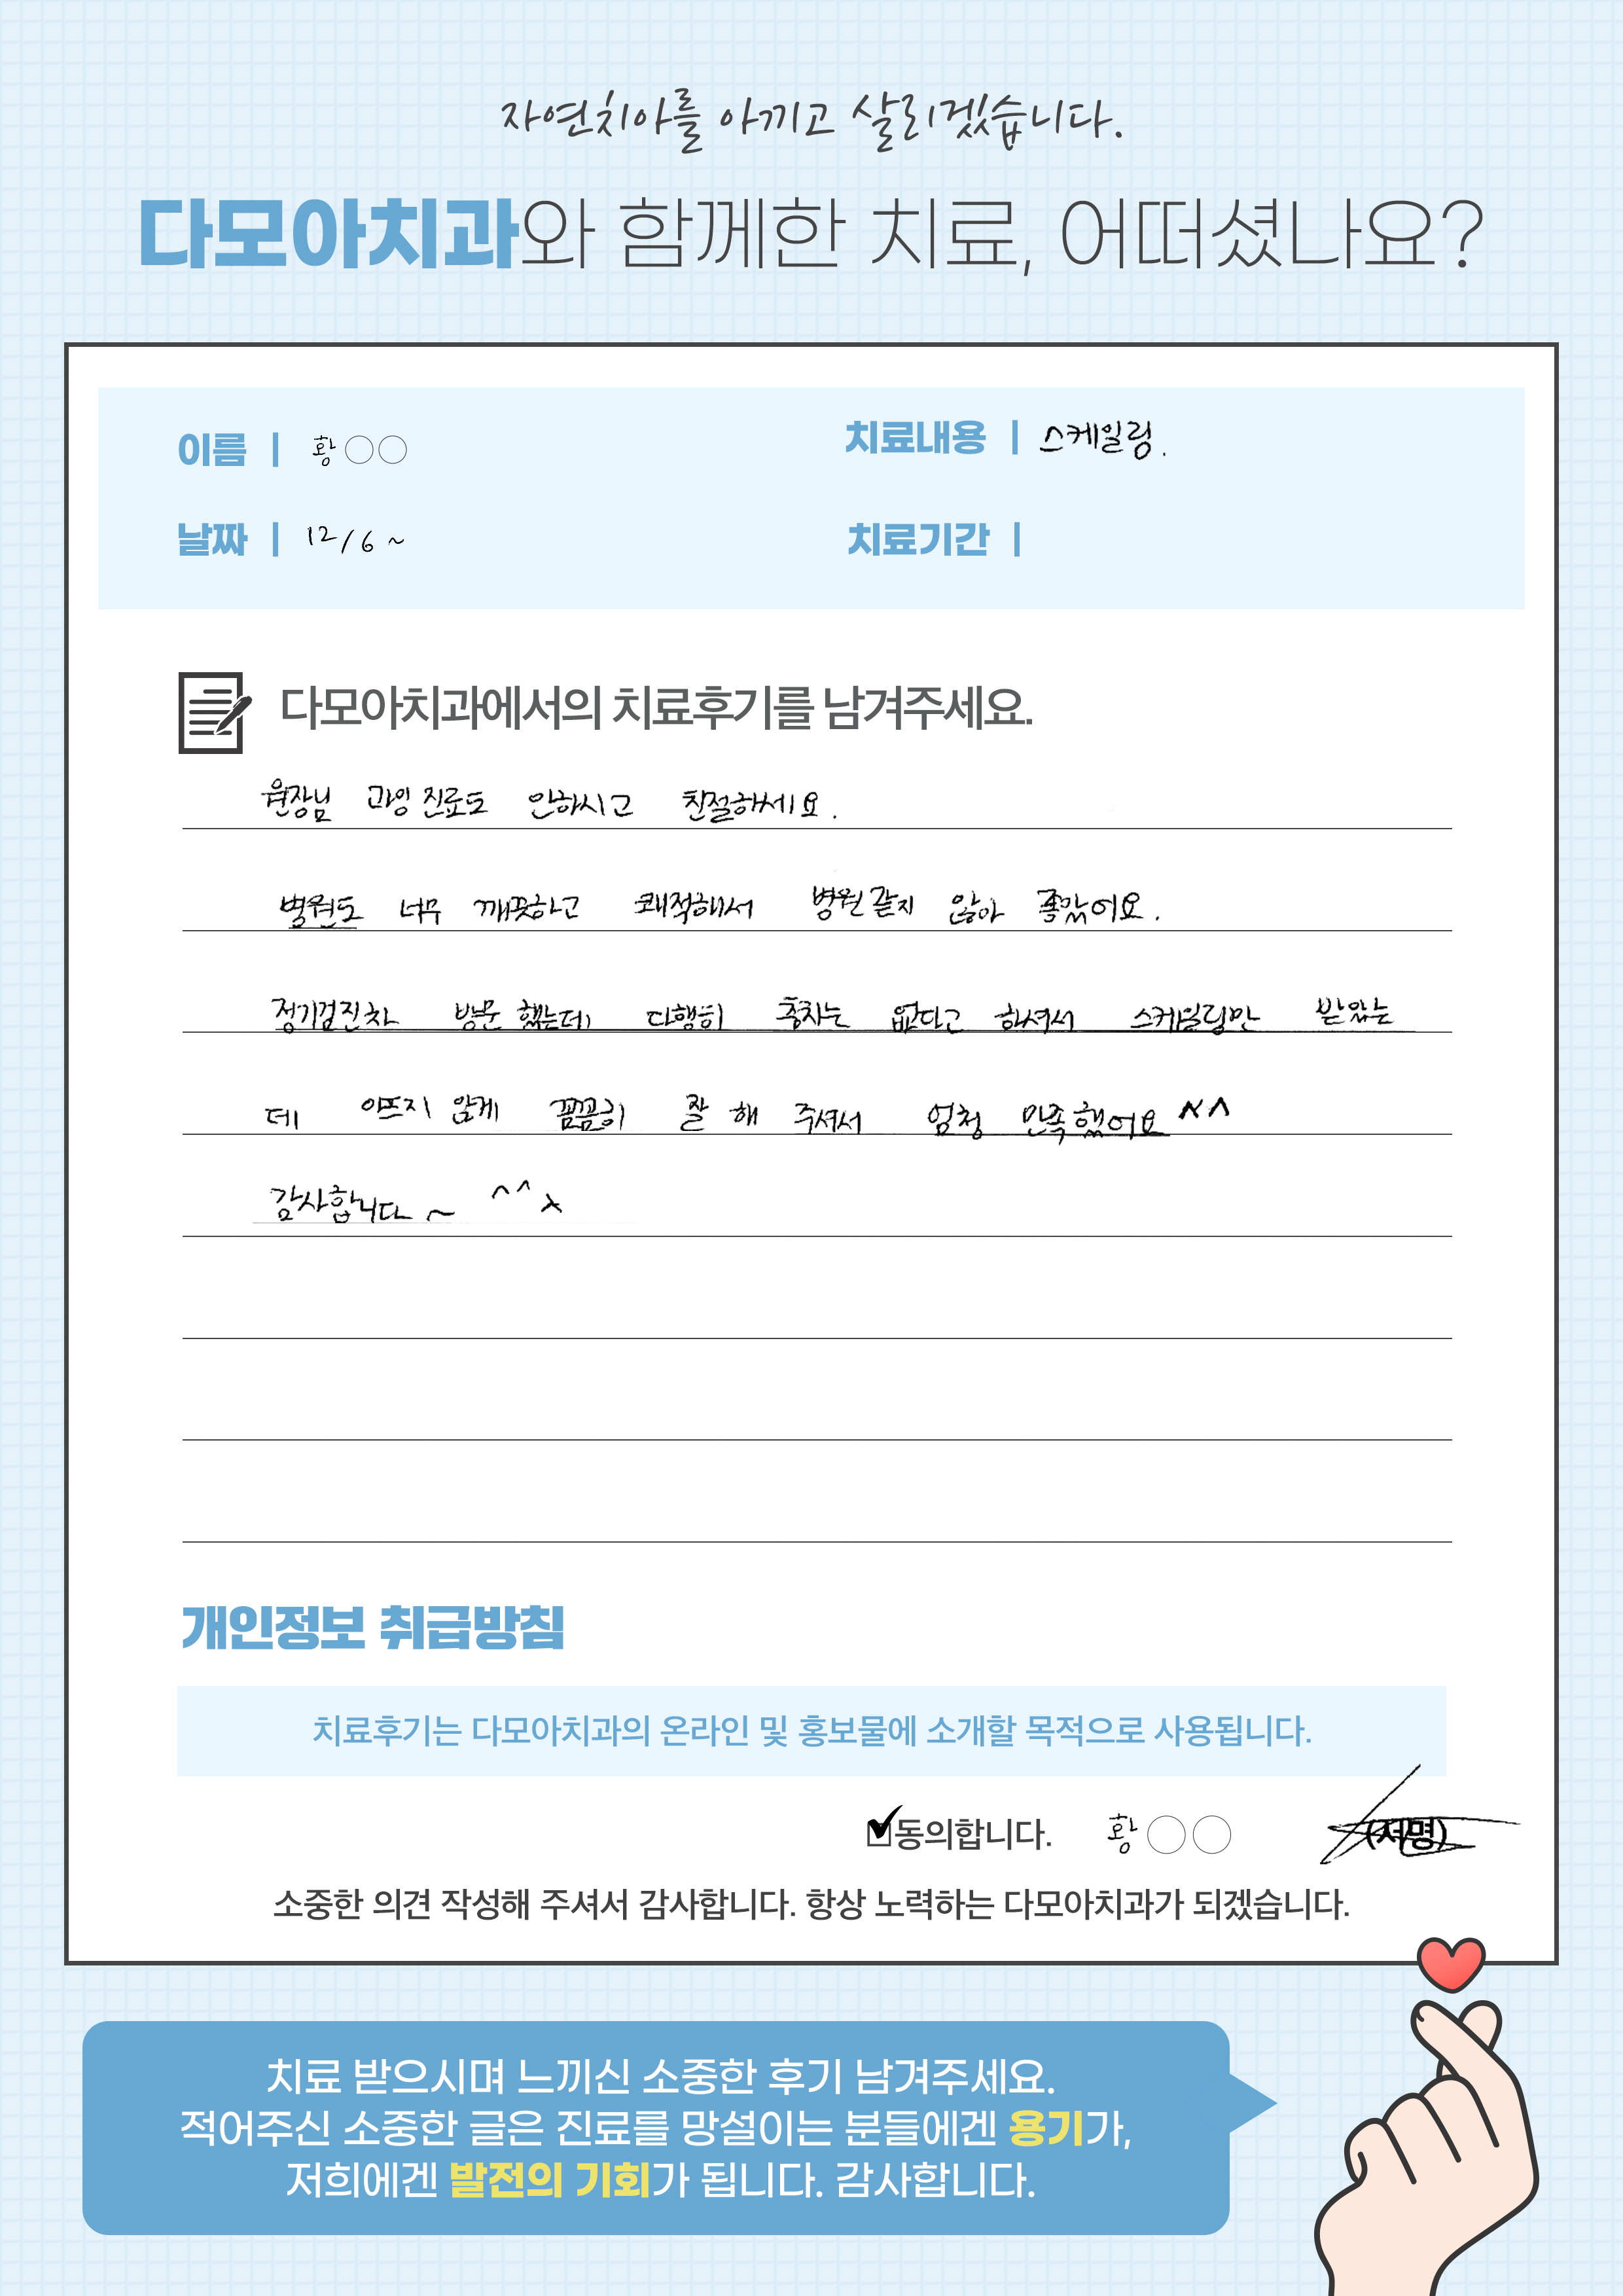 자연치아를 아끼고 살리겠습니다.
다모아치과와 함께한 치료, 어떠셨나요?
이름 | 황○○
치료내용 | 스케일링.
날짜 | 12/6 ~
치료기간 |
다모아치과에서의 치료후기를 남겨주세요.
원장님 과잉 진료도 안하시고 친절하세요.
병원도 너무 깨끗하고 쾌적해서 병원 같지 않아 좋았어요.
정기검진차 방문 했는데 다행히 충치는 없다고 하셔서 스케일링만 받았는
데 아프지 않게 꼼꼼히 잘 해 주셔서 엄청 만족했어요 ^^
감사합니다~ ^^
개인정보 취급방침
치료후기는 다모아치과의 온라인 및 홍보물에 소개할 목적으로 사용됩니다.
동의합니다. 황○○ (서명)
소중한 의견 작성해 주셔서 감사합니다. 항상 노력하는 다모아치과가 되겠습니다.
치료 받으시며 느끼신 소중한 후기 남겨주세요.
적어주신 소중한 글은 진료를 망설이는 분들에겐 용기가,
저희에겐 발전의 기회가 됩니다. 감사합니다.